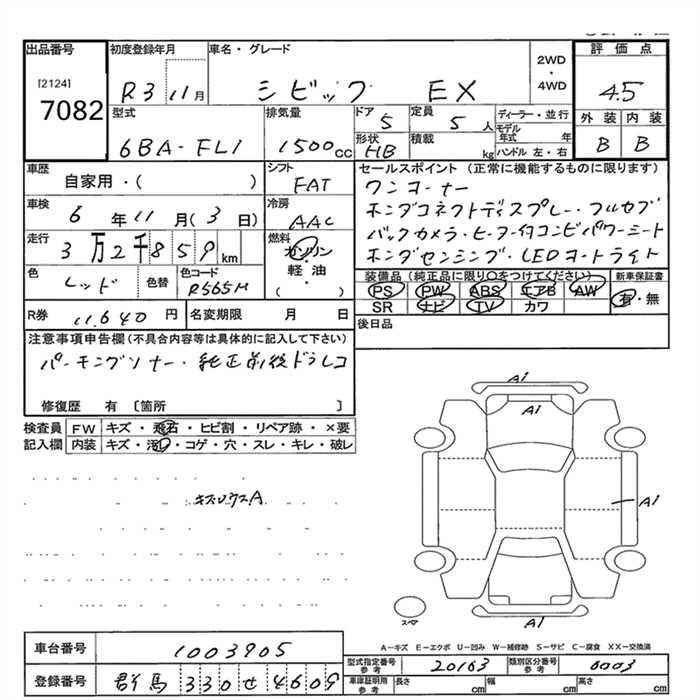 出品番号
[2124]
7082
初度登録年月
R3 11月
車名・グレード
シビック EX
2WD
・
4WD
評価点
4.5
型式
6BA-FL1
排気量
1500cc
ドア
5
定員
5人
形状
HB
積載
kg
ディーラー・並行
モデル年式 年
ハンドル 左・右
外装 内装
B B
車歴
自家用・( )
シフト
FAT
車検
6年11月(3日)
冷房
AAC
走行
3万2千859km
燃料
ガソリン
・
軽・油
( )
色
レッド
色替
色コード
R565M
R券
11,640円
名変期限 月 日
セールスポイント (正常に機能するものに限ります)
ワンオーナー
ホンダコネクトディスプレー・フルセグ
バックカメラ・ヒーター付コンビパワーシート
ホンダセンシング・LEDオートライト
装備品(純正品に限り○をつけてください)
PS PW ABS エアB AW
SR ナビ TV カワ
新車保証書
有・無
後日品
注意事項申告欄(不具合内容等は具体的に記入して下さい)
パーキングソナー・純正前後ドラレコ
修復歴 有 〔箇所 〕
検査員記入欄
FW キズ・飛石・ヒビ割・リペア跡・×要
内装 キズ・汚れ・コゲ・穴・スレ・キレ・破レ
キズソウスA
A1
A1
A1
A1
スペア
A-キズ E-エクボ U-凹み W-補修跡 S-サビ C-腐食 XX-交換済
車台番号
1003905
登録番号
群馬 330 せ 4609
型式指定番号 参考
20163
類別区分番号 参考
0003
車庫証明用 参考
長さ cm 幅 cm 高さ cm